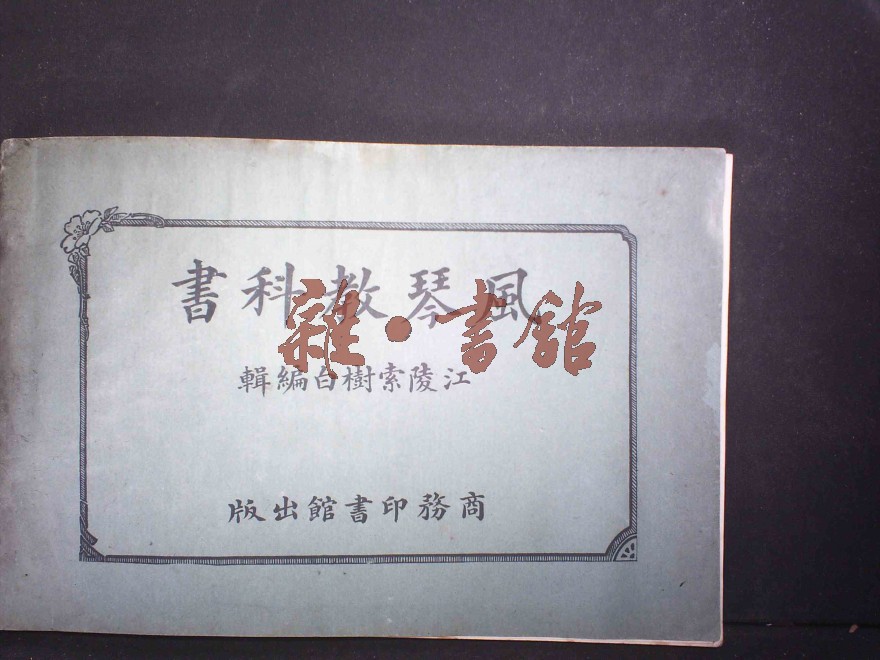 風琴教科書
雜·書館
江陵索樹白編輯
商務印書館出版